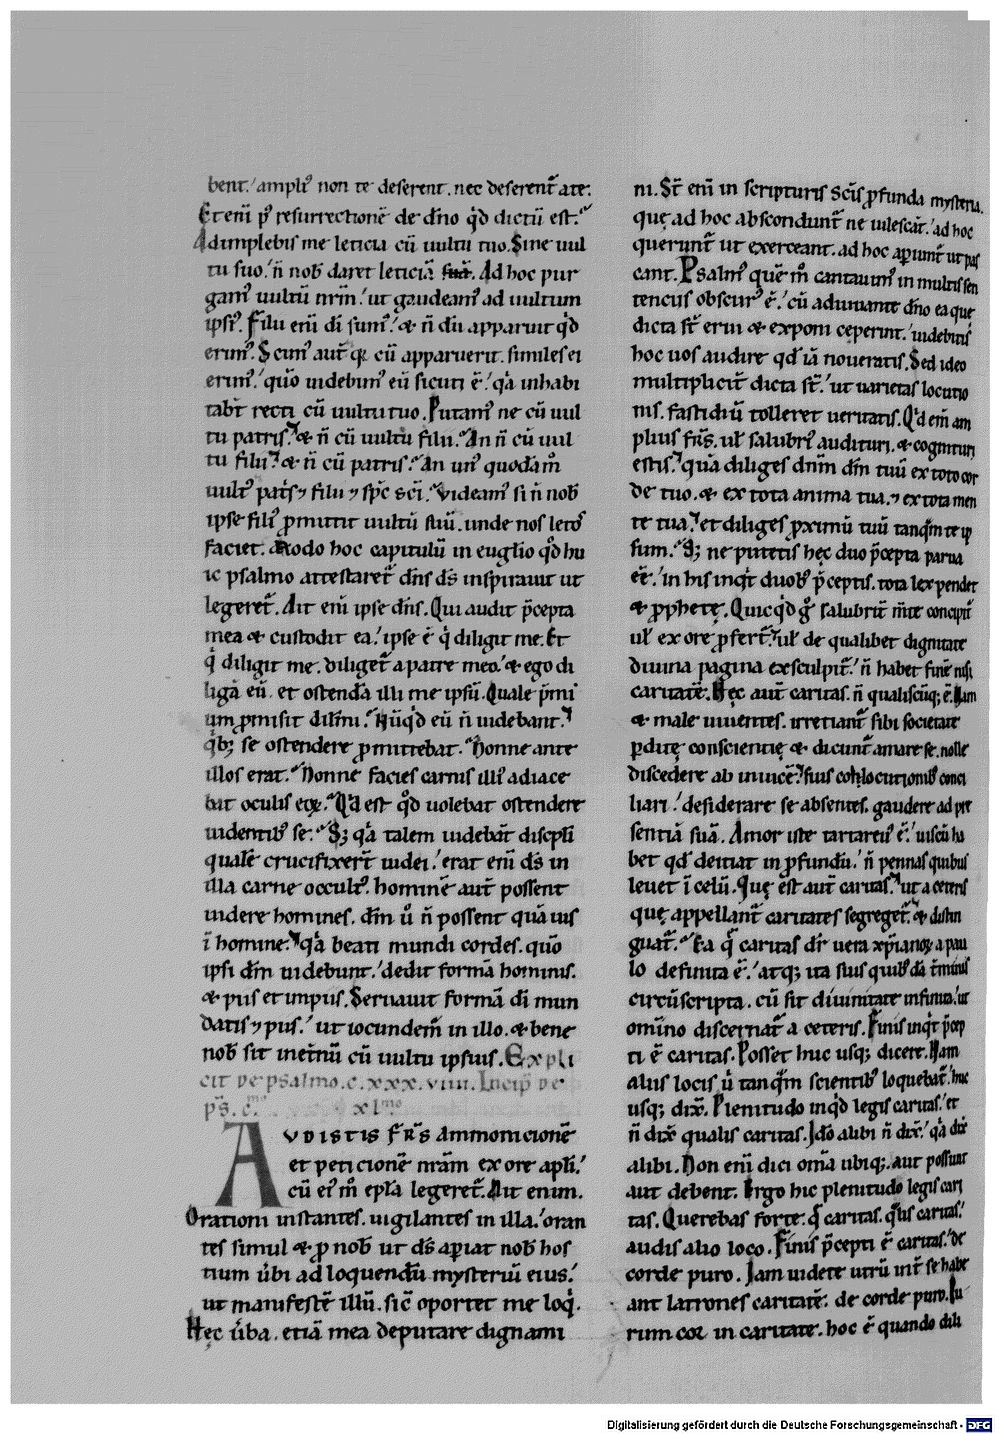 bent. ampli᷒ non te deserent. nec deserent̄ a te.
Eteni᷒ p᷒ resurrectionē de dn̄o qd̄ dictū est.
Adimplebis me leticia cū uultu tuo. Sine uul
tu suo. n̄ nob̄ daret leticiā. Ad hoc pur
gam᷒ uultū nr̄m. ut gaudeam᷒ ad uultum
ipsi᷒. Filii eni᷒ di̅ sum᷒. & n̄ dū apparuit qd̄
erim᷒. Scim᷒ aut̄ q̨ cū apparuerit. similes ei
erim᷒. quo᷒ uidebim᷒ eū sicuti ē. qa̅ inhabi
tabt̄ recti cū uultu tuo. Putam᷒ ne cū uul
tu patris. & n̄ cū uultu filii. An n̄ cū uul
tu filii. & n̄ cū patris. An un᷒ quodam̊
uult᷒ pat̄s ⁊ filii ⁊ sp̄c sc̄i. Videam᷒ si n̄ nob̄
ipse fili᷒ ꝓmittit uultū suū. unde nos leto᷒
faciet. Modo hoc capitulū in eug̅lio qd̄ hu
ic psalmo attestaret̄ dn̄s ds̄ inspirauit ut
legeret̄. Ait eni᷒ ipse dn̄s. Qui audit p̄cepta
mea & custodit ea. ipse ē q̇ diligit me. Et
q̇ diligit me. diliget̄ a patre meo. & ego di
ligā eū. et ostendā illi me ipsū. Quale p̄mi
um ꝓmisit dil̅mi. Nūqd̄ eū n̄ uidebant.
q̇b; se ostendere ꝓmittebat. Nonne ante
illos erat. Nonne facies carnis illi᷒ adiace
bat oculis eoꝝ. Qd̄ est qd̄ uolebat ostendere
uidentib᷒ se. S; qa̅ talem uidebāt discpl̅i
qualē crucifixert̄ iudei. erat eni᷒ ds̄ in
illa carne occult᷒. hominē aut̄ possent
uidere homines. dm̄ u̇ n̄ possent quāuis
ī homine. qa̅ beati mundi cordes. quo᷒
ipsi dm̄ uidebunt. dedit formā hominis.
& piis et impiis. Seruauit formā di̅ mun
datis ⁊ piis. ut iocundem̄ in illo. & bene
nob̄ sit inet̄nū cū uultu ipsius. Expli
cit de psalmo. c.xxx.viiii. Incip̄ de
ps̄. c.mo xl.mo
AVDISTIS fr̄s ammonicionē
et peticionē nr̄am ex ore apl̅i.
cū ei᷒ m̊ epl̅a legeret̄. Ait enim.
Orationi instantes. uigilantes in illa. oran
tes simul & ꝓ nob̄ ut ds̄ aꝑiat nob̄ hos
tium u̇bi ad loquendū mysteriū eius.
ut manifestē illū. sic̄ oportet me loq̇.
Hęc u̇ba. etiā mea deputare dignami
ni. St̄ eni᷒ in scripturis sc̄is ꝓfunda mysteria.
quę ad hoc abscondunt̄ ne uilescāt. ad hoc
querunt̄ ut exerceant. ad hoc aꝑiunt̄ ut pas
cant. Psalm᷒ quē m̊ cantauim᷒ in multis sen
tenciis obscur᷒ ē. cū adiuuante dn̄o ea que
dicta st̄ erui & exponi ceperint. uidebitis
hoc uos audire qd̄ iā noueratis. Sed ideo
multiplicit̄ dicta st̄. ut uarietas locutio
nis. fastidiū tolleret ueritatis. Qd̄ eni᷒ am
plius fr̄s. ul̅ salubri᷒ audituri. & cognituri
estis. quā diliges dn̄m dm̄ tuū ex toto cor
de tuo. & ex tota anima tua. ⁊ ex tota men
te tua. et diliges ꝓximū tuū tanq̄m te ip
sum. S; ne putetis hęc duo p̄cepta parua
eē. in his inq̇t duob᷒ p̄ceptis. tota lex pendet
& ꝓphetę. Quicqd̄ g̊ salubrit̄ m̄te concipit̄
ul̅ ex ore ꝓfert̄. ul̅ de qualibet dignitate
diuina pagina exsculpit̄. n̄ habet finē nisi
caritatē. Hęc aut̄ caritas. n̄ qualiscūq; ē. Nam
& male uiuentes. irretiant̄ sibi societate
ꝑditę conscientię & dicunt̄ amare se. nolle
discedere ab inuicē. suis cohlocutionib᷒ conci
liari. desiderare se absentes. gaudere ad pre
sentiā suā. Amor iste tartare᷒ ē. uiscū ha
bet qd̄ deiciat in ꝓfundū. n̄ pennas quibus
leuet ī celū. Quę est aut̄ caritas. ut a ceteris
quę appellant̄ caritates segreget̄. & distin
guat̄. Ea q̄ caritas dr̄ uera xp̄ianoꝝ a pau
lo definita ē. atq; ita suis quib᷒dā t̄minis
circūscripta. cū sit diuinitate infinita. ut
omīno discernat̄ a ceteris. Finis inq̇t p̄cep
ti ē caritas. Posset huc usq; dicere. Nam
aliis locis u̇ tanq̄m scientib᷒ loquebat̄. huc
usq; dix̄. Plenitudo inqd̄ legis caritas. et
n̄ dix̄ qualis caritas. Ido̅ alibi n̄ dix̄. qa̅ dix̄
alibi. Non eni᷒ dici om̄a ubiq;. aut possunt
aut debent. Ergo hic plenitudo legis cari
tas. Querebas forte. q̄ caritas. ql̅is caritas.
audis alio loco. Finis p̄cepti ē caritas. de
corde puro. Iam uidete utrū int̄ se habe
ant latrones caritatē. de corde puro. Pu
rum cor in caritate. hoc ē quando dili
Digitalisierung gefördert durch die Deutsche Forschungsgemeinschaft - DFG